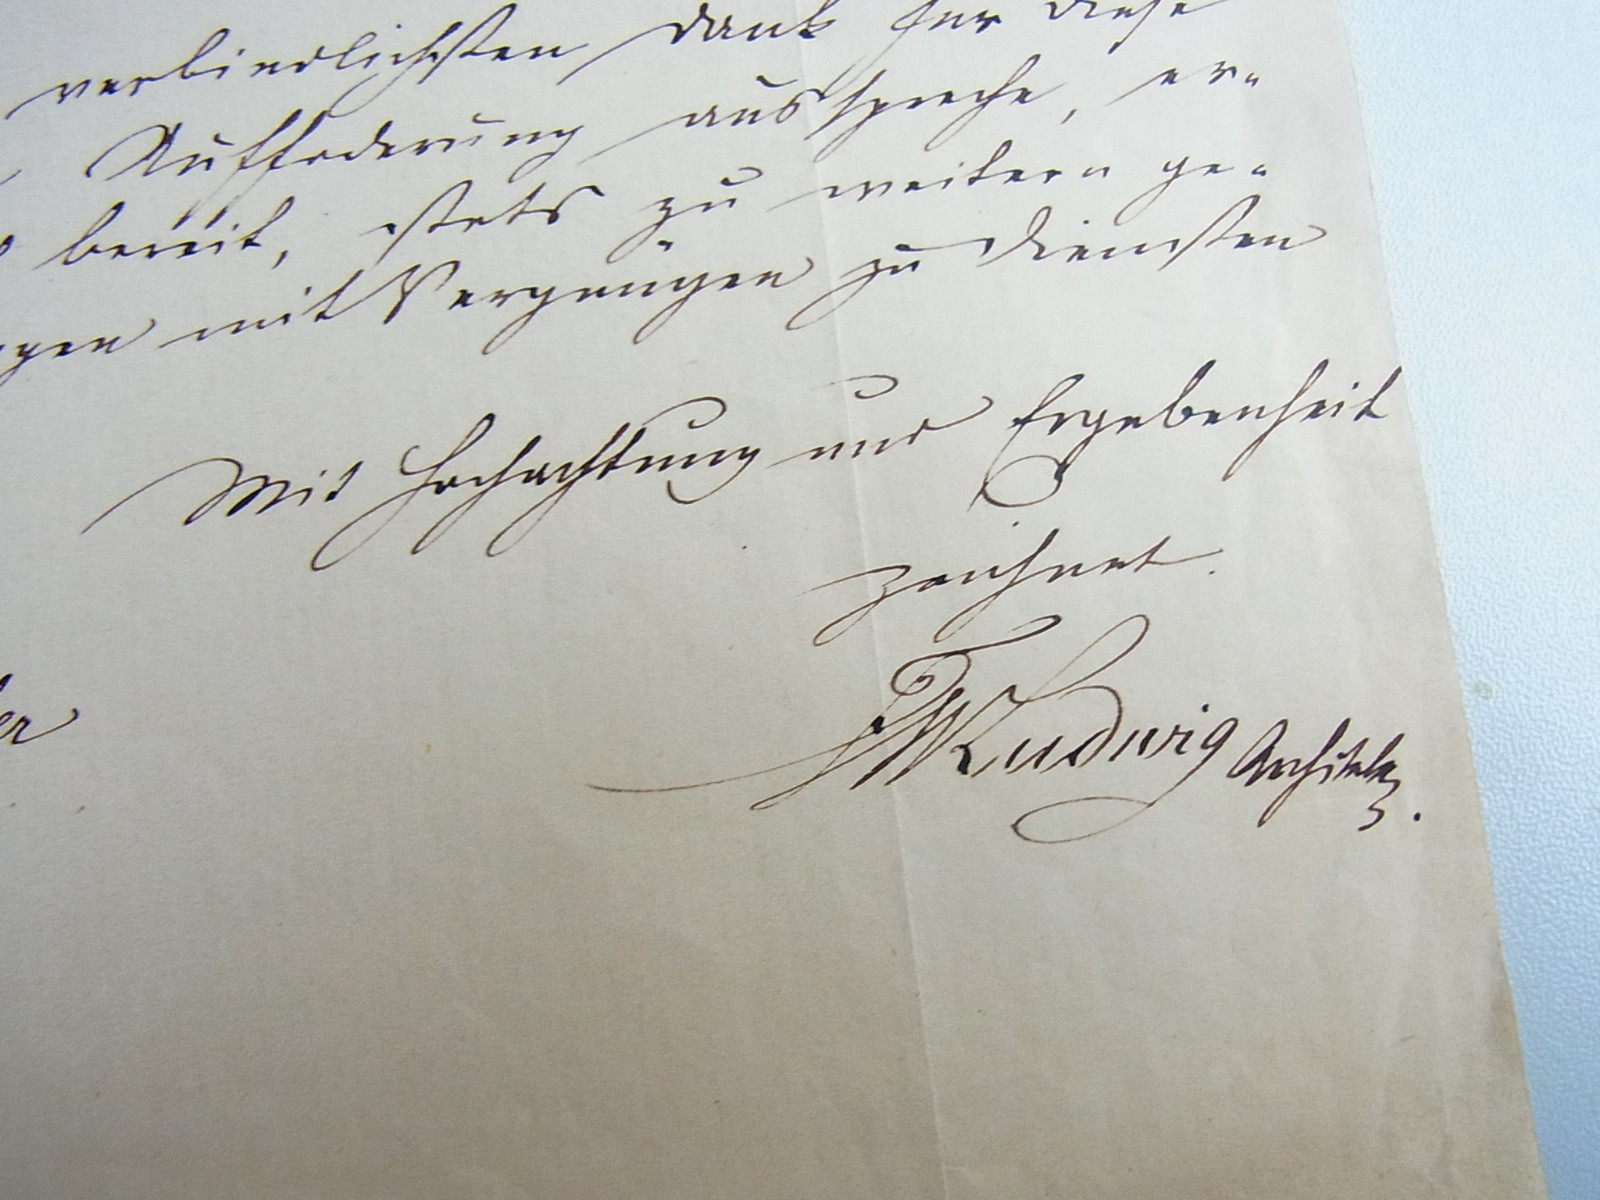 verbindlichsten Dank für diese
Aufforderung ausspreche, er-
bereit, stets zu weitern ge-
gen mit Vergnügen zu Diensten
Mit Hochachtung und Ergebenheit
zeichnet.
Ludwig Architekt.